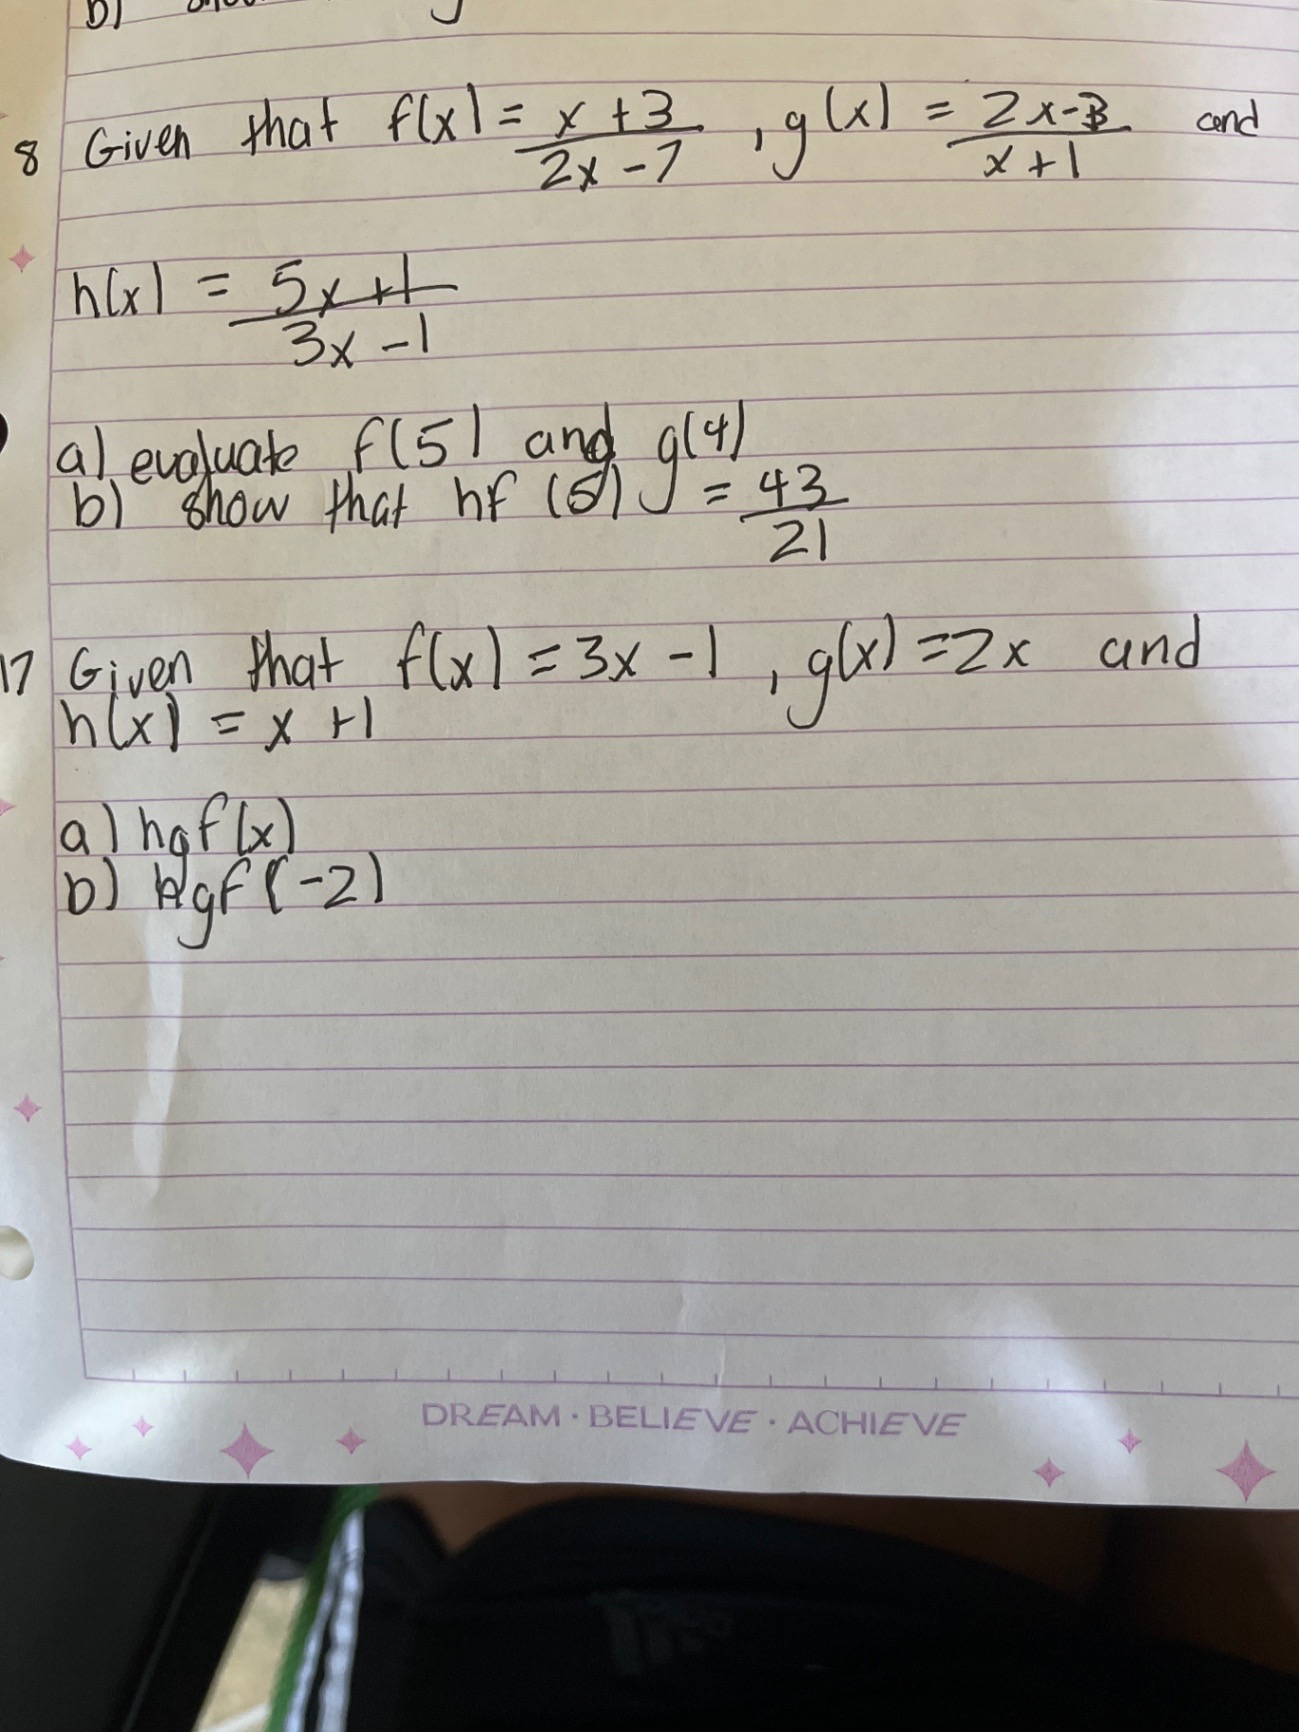 b)
8 Given that f(x) = x + 3 / 2x - 7 , g(x) = 2x - 3 / x + 1 and
h(x) = 5x + 1 / 3x - 1
a) evaluate f(5) and g(4)
b) show that hf (5) = 43 / 21
17 Given that f(x) = 3x - 1 , g(x) = 2x and
h(x) = x + 1
a) hgf(x)
b) hgf(-2)
DREAM · BELIEVE · ACHIEVE